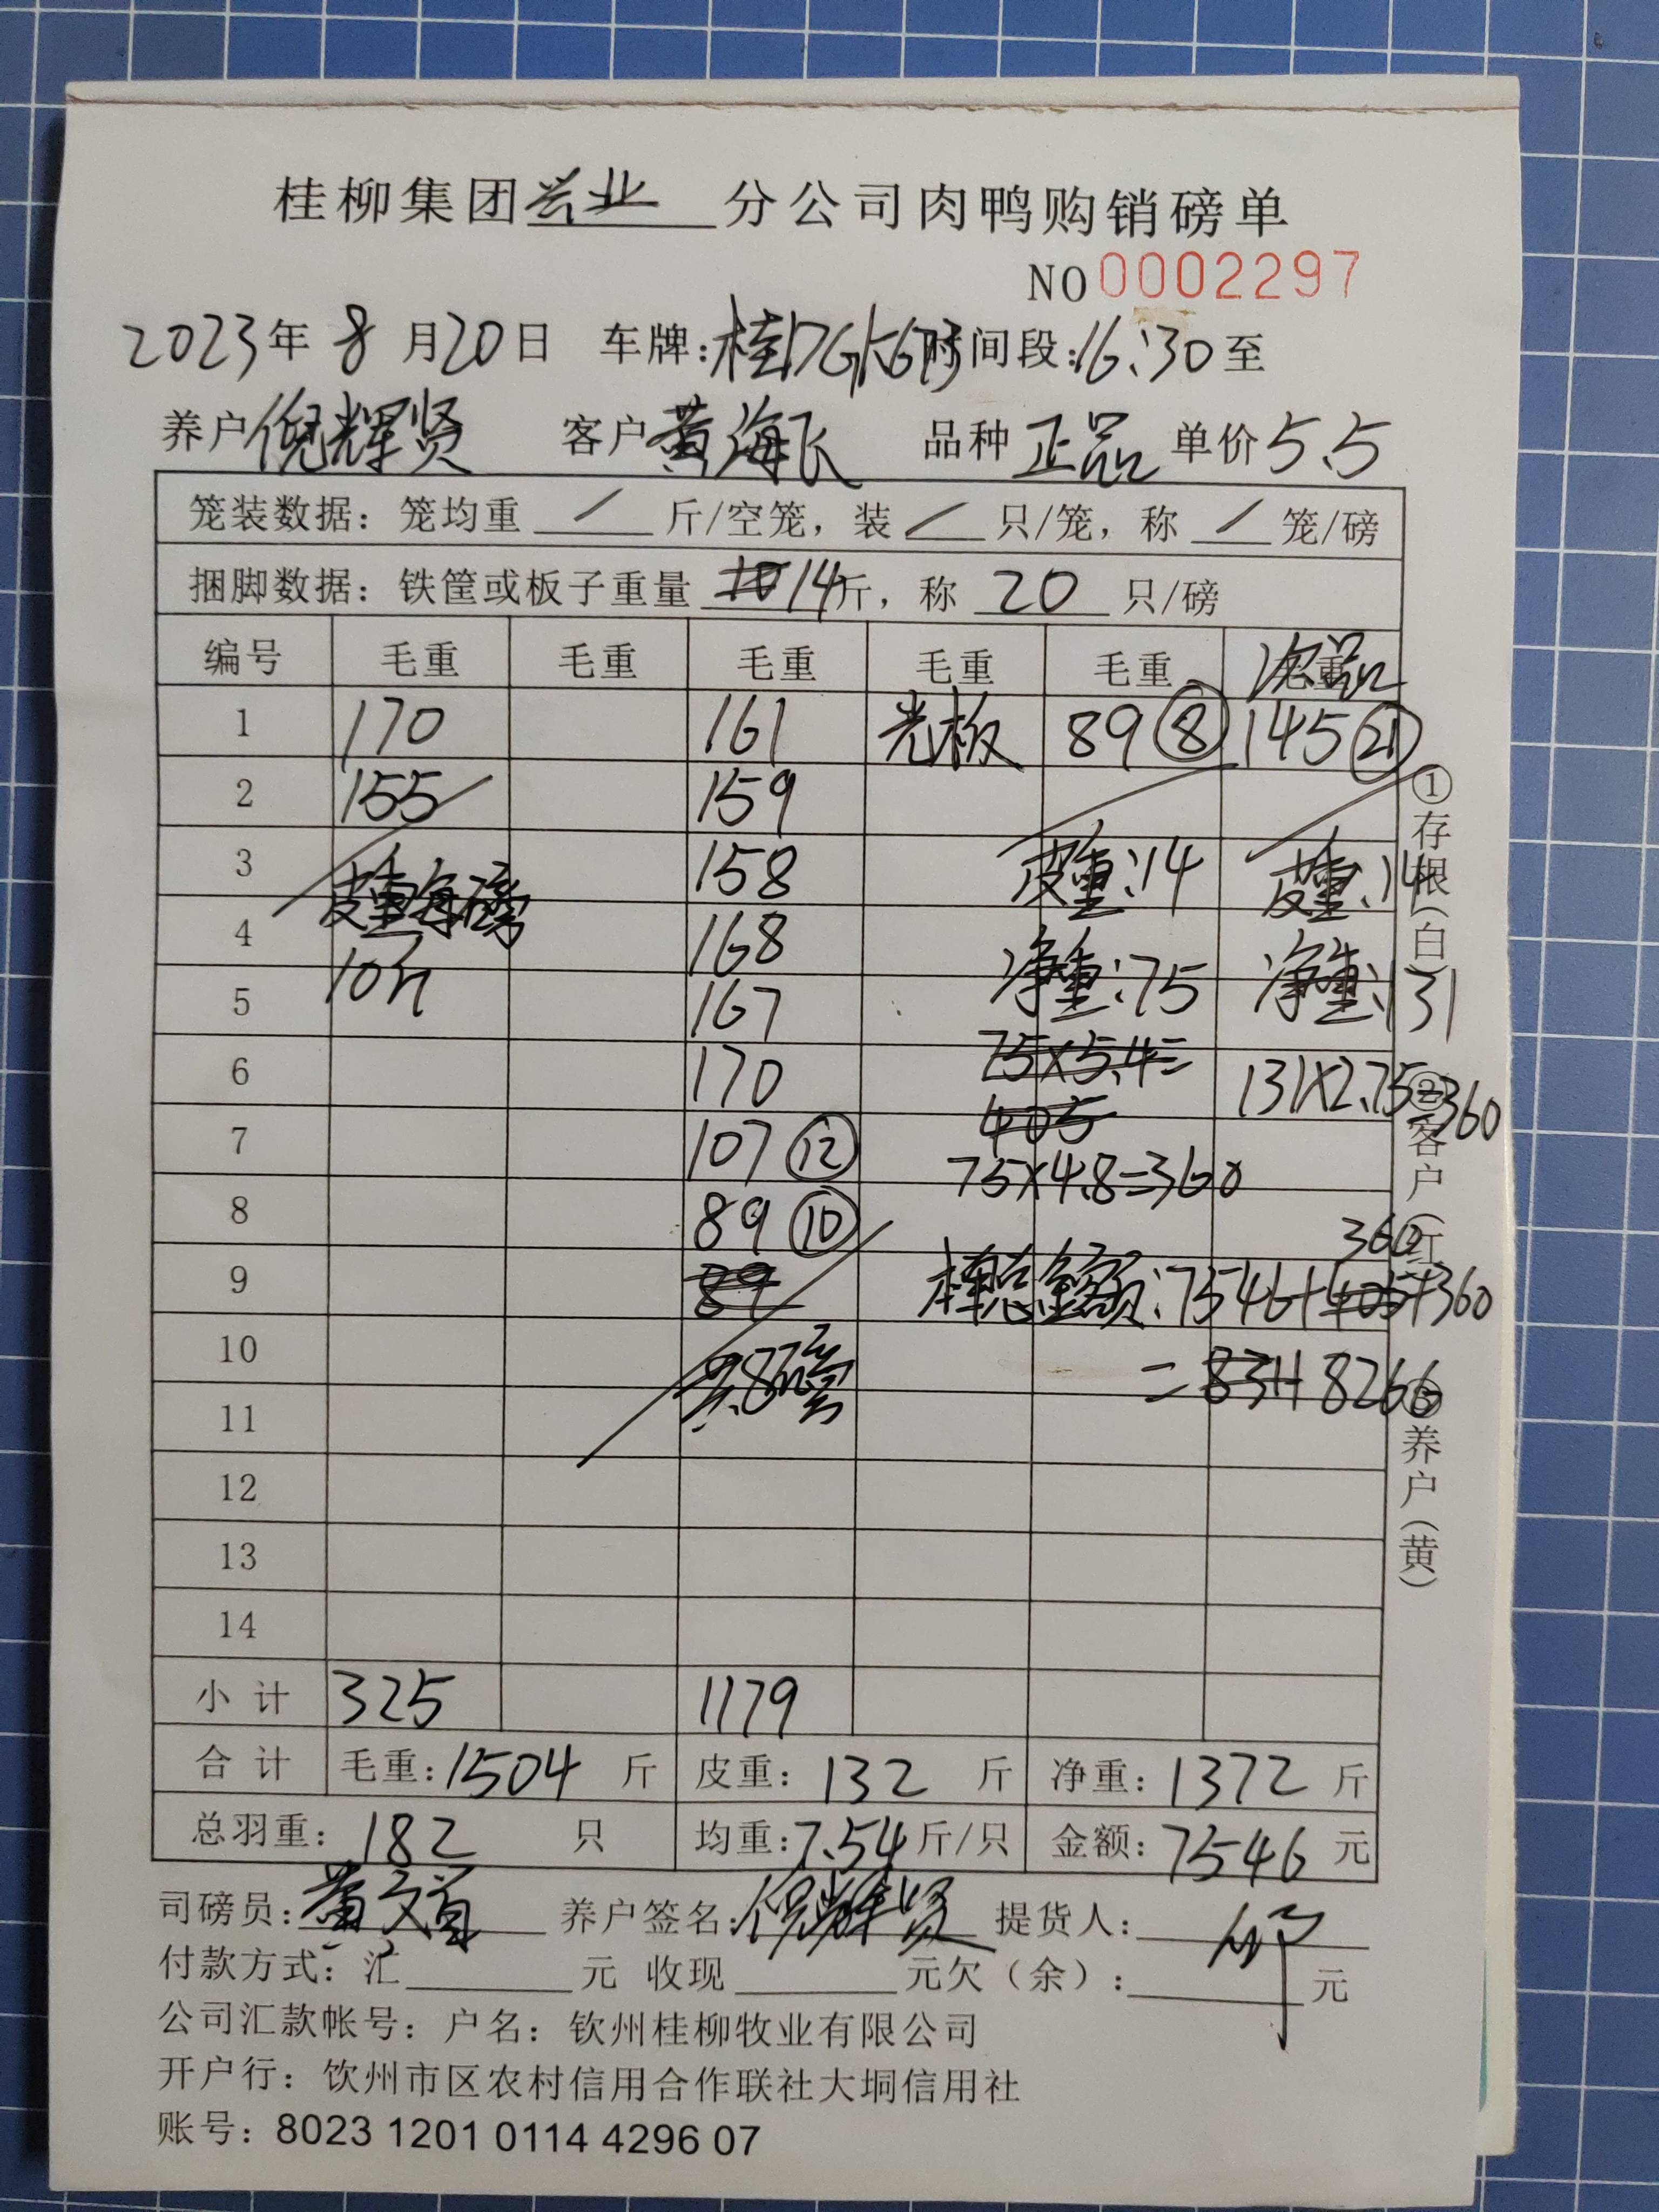 桂柳集团兴业分公司肉鸭购销磅单
NO 0002297
2023年 8月20日 车牌: 时间段:16:30至
养户 倪辉贤 客户 黄海飞 品种 正品 单价 5.5
笼装数据: 笼均重 / 斤/空笼, 装 / 只/笼, 称 / 笼/磅
捆脚数据: 铁筐或板子重量 10 14斤, 称 20 只/磅
编号 毛重 毛重 毛重 毛重 毛重 毛重 次品
1 170 161 光板 89 ⑧ 145 ㉑
2 155 159
3 158 皮重:14 皮重:14
皮重每磅
4 168
10斤 净重:75 净重:131
5 167
75×5.4=
6 170 131×2.75=360
405
7 107 ⑫
75×4.8=360
8 89 ⑩
360
9 89 本车总金额:7546+405+360
10 共8磅 =8311 8266
11
12
13
14
小计 325 1179
合计 毛重:1504 斤 皮重: 132 斤 净重: 1372 斤
总羽重: 182 只 均重:7.54斤/只 金额: 7546 元
司磅员: 养户签名:倪辉贤 提货人:
付款方式: 汇 元 收现 元欠(余): 元
公司汇款帐号: 户名: 钦州桂柳牧业有限公司
开户行: 饮州市区农村信用合作联社大垌信用社
账号: 8023 1201 0114 4296 07
①存根(白)
②客户(红)
③养户(黄)